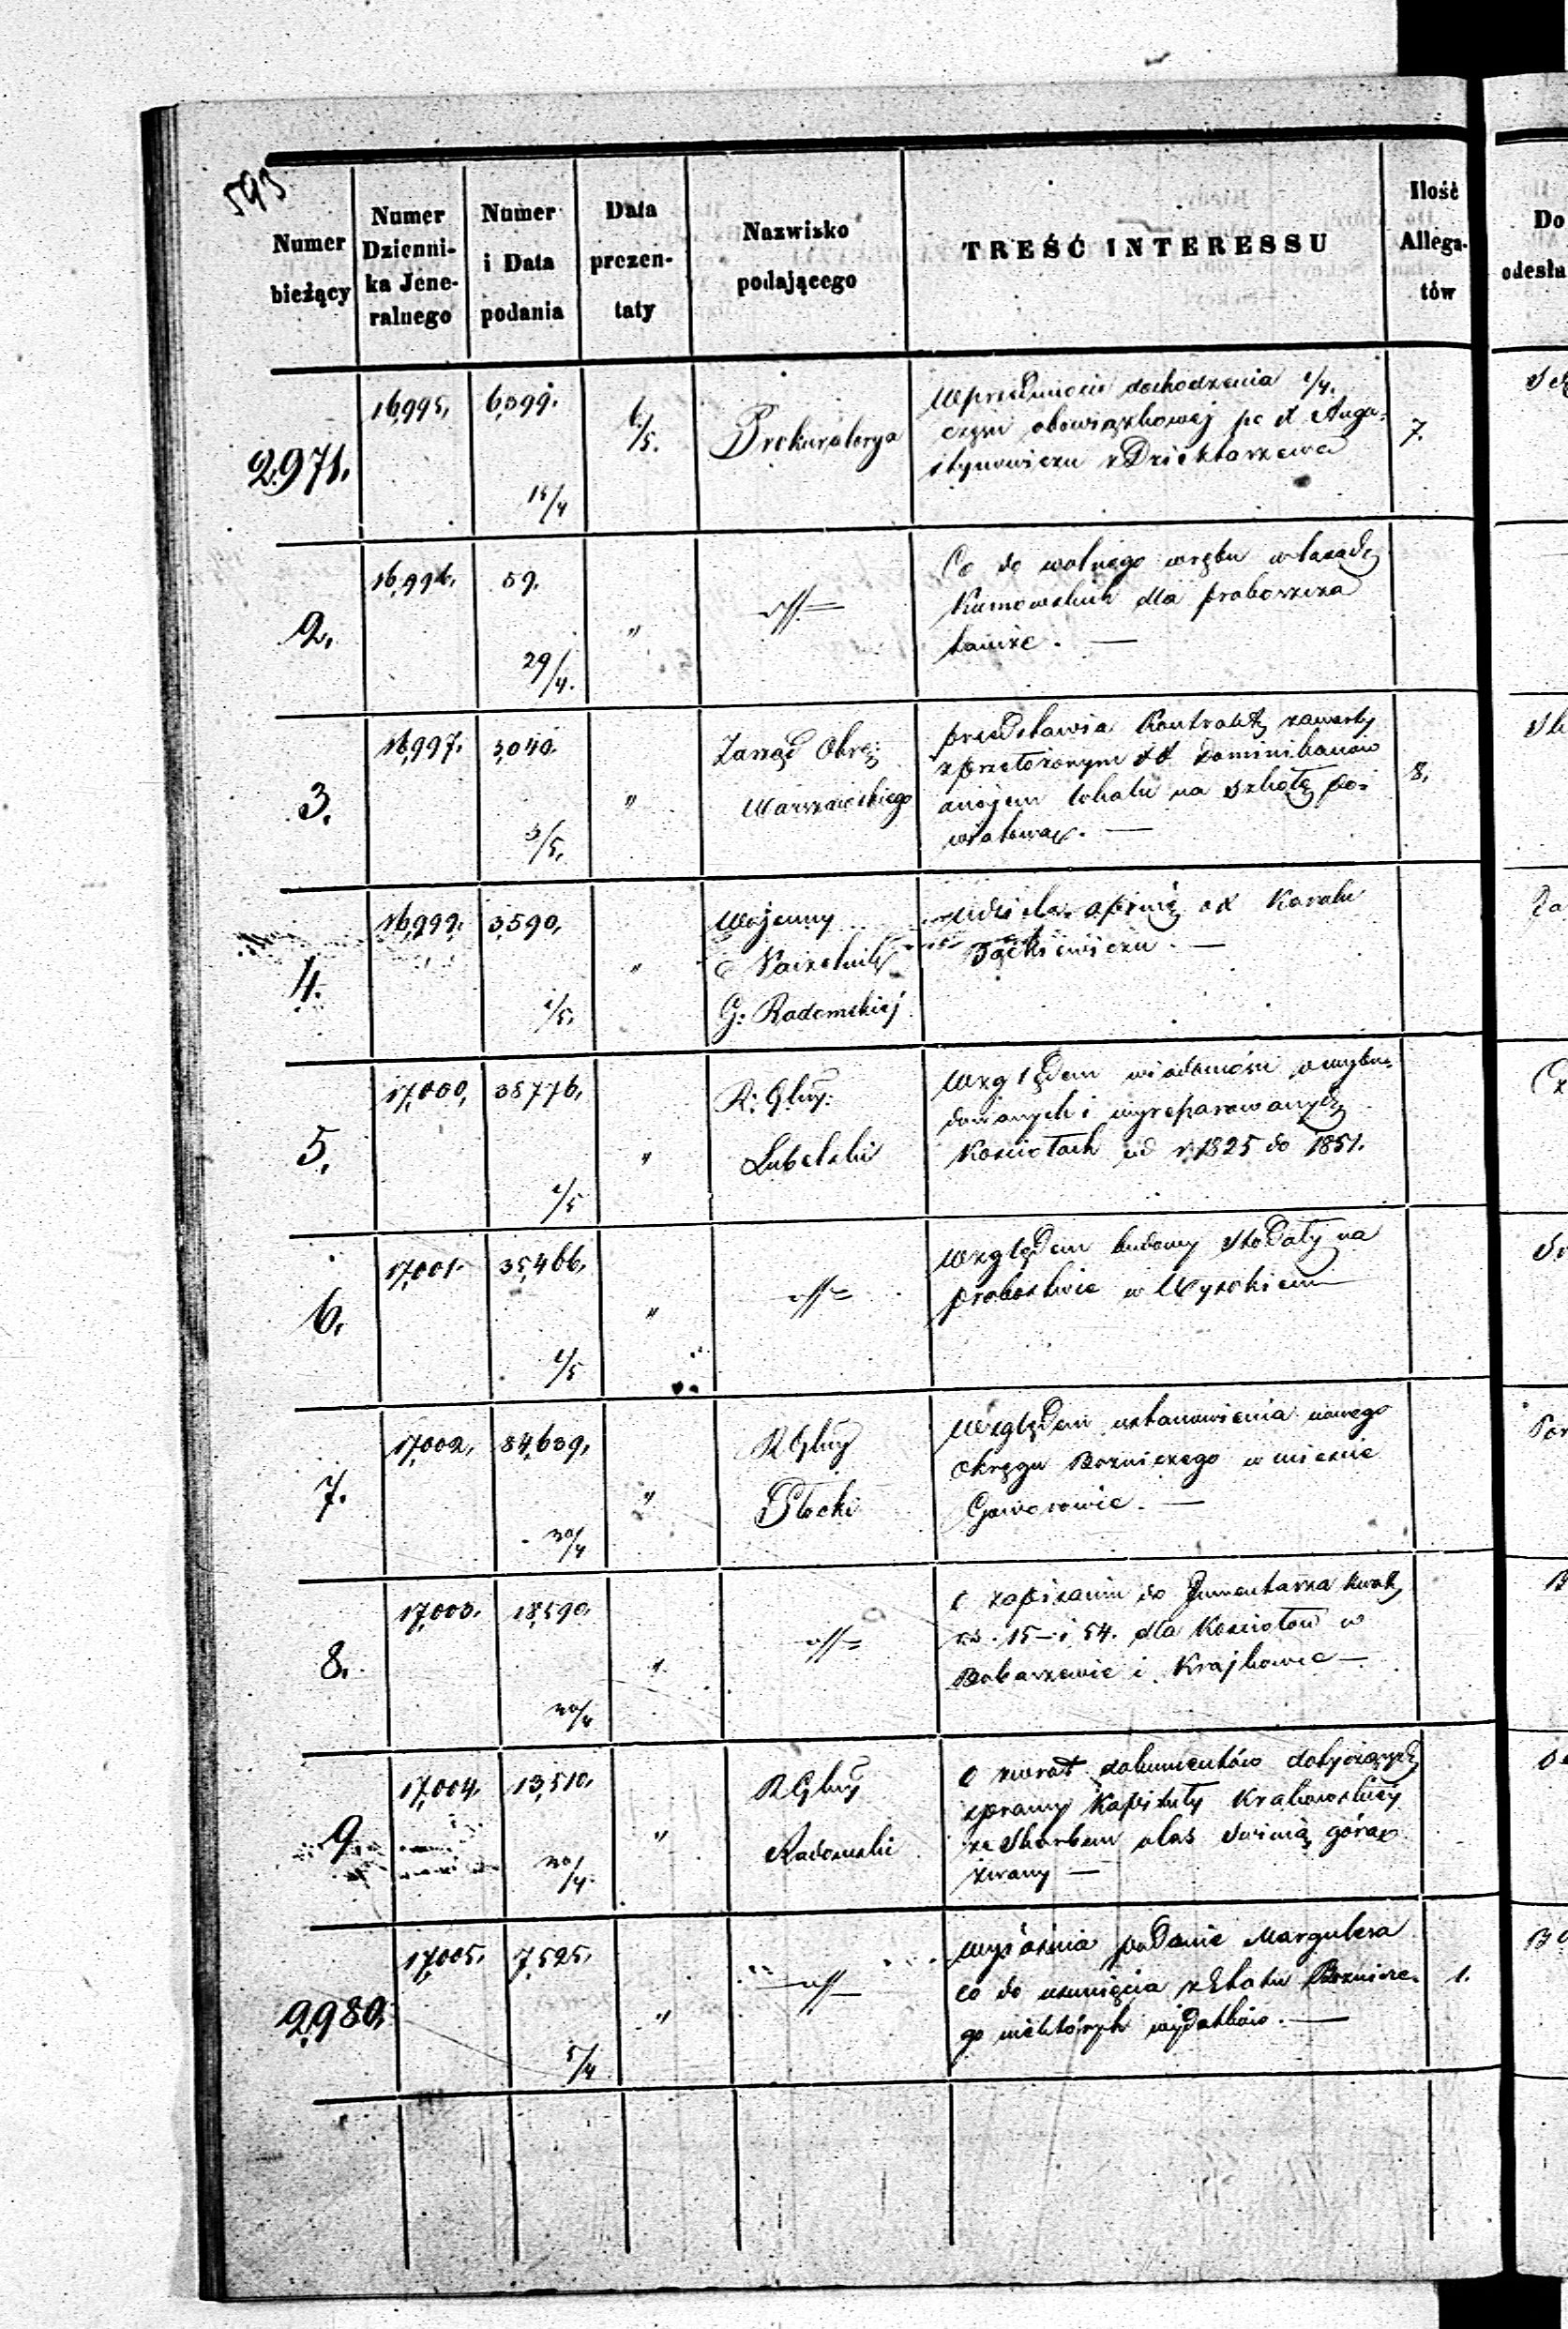 593
Numer bieżący
Numer Dzienni-ka Jene-ralnego
Numer i Data podania
Data prezen-taty
Nazwisko podającego
TREŚĆ INTERESSU
Ilość Allega-tów
Do odesła
2971.
16,995,
6,099.
15/4
6/5.
Prokuratorya
W przedmiocie dochodzenia 1/4.
części obowiązkowej po X Augu-
stynowiczu z Dziektarzewa
7.
2.
16,996,
59,
29/4.
"
Co do wolnego wrębu w lasach
Kumowskich dla proboszcza
tamże. —
3.
16,997.
3,040.
3/5.
"
Zarząd Okrę:
Warszawskiego
przedstawia Kontrakt zawarty
z przełożonym XX Dominikanów
o najem lokalu na szkołę po-
wiatową. —
8.
4.
16,999.
3,590,
1/5.
"
Wojenny
Naczelnik
G: Radomskiej
udziela opinię o X Karolu
—
5.
17,000,
38776,
1/5
"
R: Gbny:
Lubelski
Względem wiadomości o wybu-
dowanych i wyreparowanych
Kościołach od r. 1825 do 1851.
6.
17,001.
35,466,
1/5
"
Względem budowy stodoły na
probostwie w Wysokiem
7.
17,002,
84,639,
30/4
"
R Gbny
Płocki
Względem ustanowienia nowego
okręgu Bożniczego w mieście
Goworowie. —
8.
17,003.
18,590.
30/4
"
O zapisaniu do Jnwentarza kwot
rs. 15 – i 54. dla Kościołów w
i Krajkowie —
9.
17,004.
13,510.
30/4.
"
R Gbny
Radomski
O zwrot dokumentów dotyczących
sprawy Kapituły Krakowskiej
ze Skarbem o las Świnią górą
zwany —
2,980.
17,005.
7,525.
5/4
"
Wyjaśnia podanie Margulesa
co do usunięcia z Etatu Bożnicze-
go niektórych wydatków. —
1.